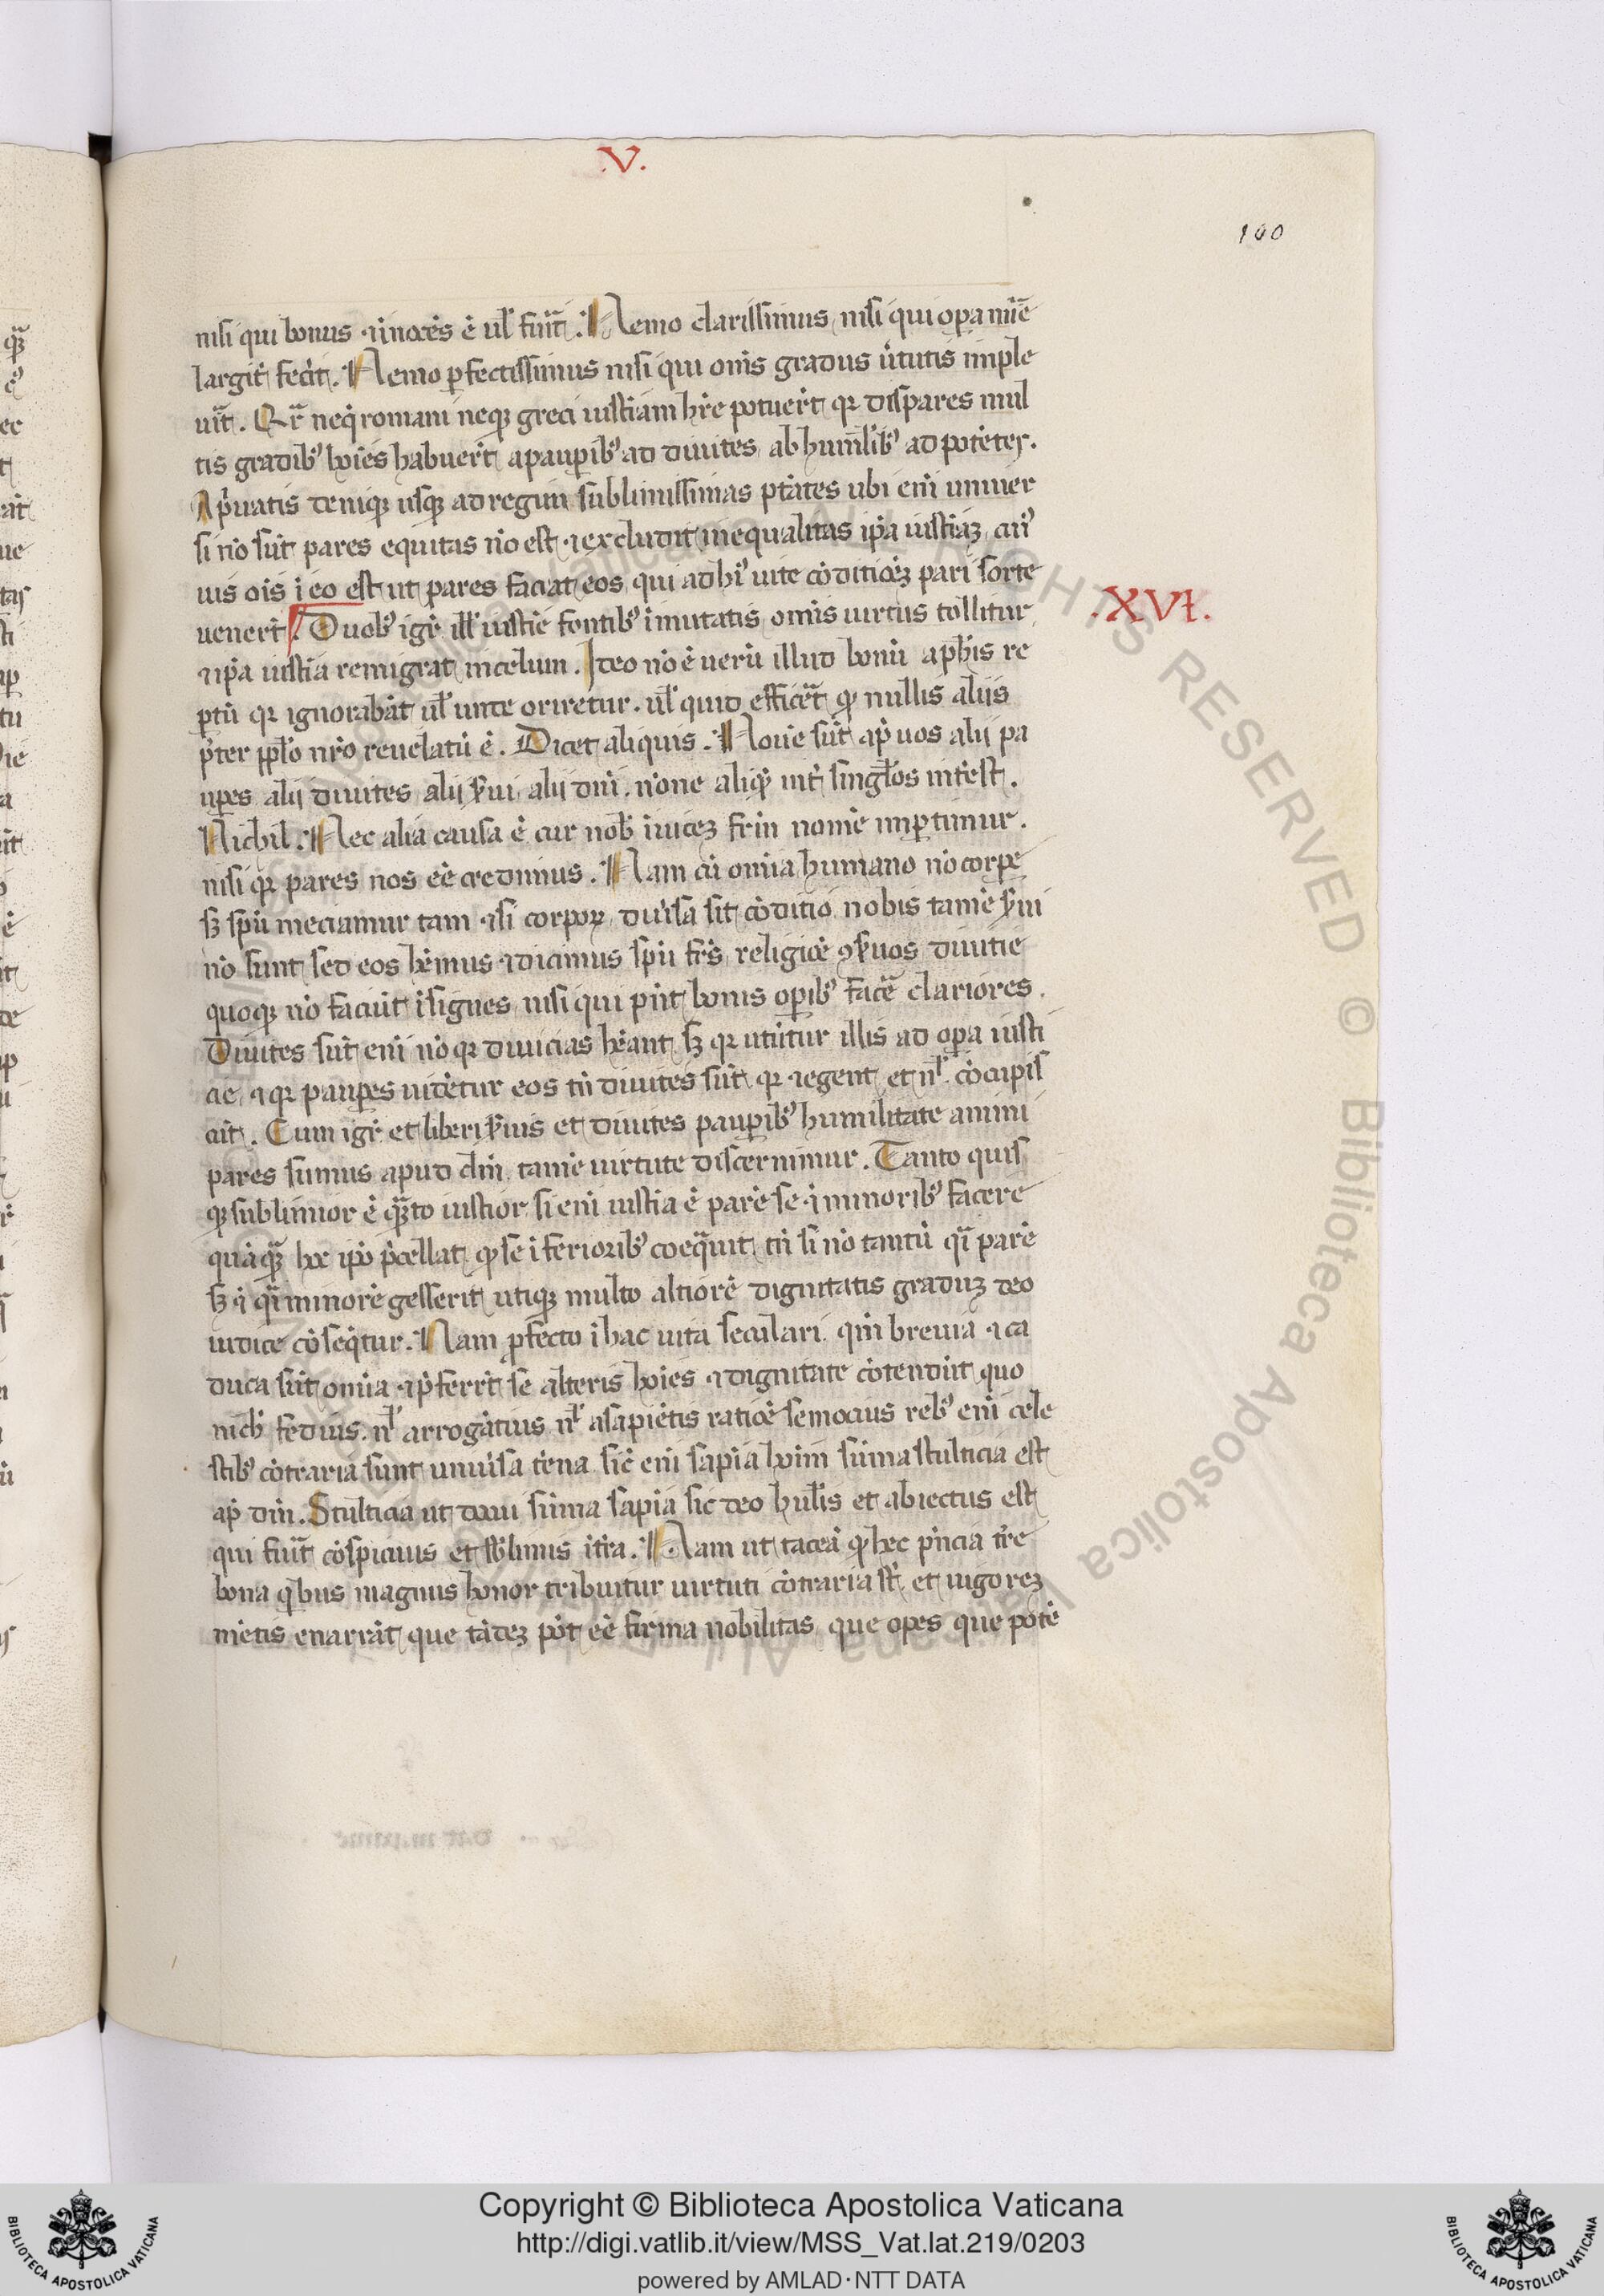 .V.
100
nisi qui bonus ⁊ inocēs ē ul̓ fuīt. Nemo clarissimus nisi qui opa mīe
largit̓ fecit. Nemo pfectissimus nisi qui om̄s gradus ūtutis imple
uīt. Qr̄ neq romani neq; greci iusticiam hr̄e potuer̄t qr dispares mul
tis gradib; hoīes habuer̄t a paupib; ad diuites ab humilib; ad potētes.
A p̓uatis deniq; usq; ad regum sublimissimas ptātes ubi eni uniuer
si nō sūt pares equitas nō est ⁊ excludit inequalitas ip̄a iustiā; cui̓
uis ois i eo est ut pares faciat eos qui ad hui̓ uite cōditiōez pari sorte
uener̄t. Duob; igr̄ ill̓ iustie fontib; imutatis omīs uirtus tollitur
.XVI.
⁊ ip̄a iustīa remigrat in celum. Ideo nō ē uerū illud bonū a ph̄is re
ptū qr ignorabāt ul̓ unde oriretur. ul̓ quid efficēt qđ nullis aliis
p̄ter pplō nr̄o reuelatū ē. Dicet aliquis. Nōne sūt apđ uos alij pa
upes alij diuites alij s̓ui alij dn̄i. nōne aliqđ int̓ singl̓os int̓est.
Nichil. Nec alia causa ē cur nob̓ iuicez frm̄ nomē impertimur.
nisi qr pares nos eē credimus. Nam cū omīa humano nō corpe
sz spū meciamur tam ⁊si corpoꝝ du̓isa sit cōditio nobis tamē s̓ui
nō sunt sed eos hēmus ⁊ dicimus spū frēs religiōe ꝯs̓uos diuitie
quoq; nō faciūt isignes nisi qui pn̄t bonis opib; facē clariores.
Diuites sūt enī nō qr diuicias hēant sz qr utūtur illis ad opa iusti
cie, ⁊ qr paupes uidētur eos tn̄ diuites sūt qr ⁊ egent et nl̓ cōcupis
cūt. Cum igr̄ et liberi s̓uis et diuites paupib; humilitate animi
pares sumus apud dm̄ tamē uirtute discernimur. Tanto quis
q; sublimior ē quāto iustior si enī iustīa ē parē se ⁊ minorib; facere
quāquā hoc ip̄o p̓cellat qđ se iferiorib; coequīt tn̄ si nō tantū qi̓ parē
sz ⁊ qi̓ minorē gesserit utiq; multo altiorē dignitatis graduz deo
iudice cōseqtur. Nam pfecto i hac uita seculari. qm̄ breuia ⁊ ca
duca sūt omīa ⁊ p̓ferr̄t se alteris hoīes ⁊ dignitate cōtendūt quo
nichil fedius. nl̓ arrogātius nl̓ a sapiētis ratiōe semocius reb; enī cele
stib; cōtraria sunt uniu̓sa t̓ena sic̄ enī sapīa hoīm sūma stulticia est
apđ dm̄. Stulticia ut docui sūma sapīa sic deo hul̓is et abiectus est
qui fuīt cōspicuus et sb̓limis i t̓ra. Nam ut taceā qđ hec p̄ncia tr̄e
bona qbus magnus honor tribuitur uirtuti cōtraria sr̄ et uigorez
mētis enarrāt que tādez pōt eē firma nobilitas que opes que potē
Copyright © Biblioteca Apostolica Vaticana
http://digi.vatlib.it/view/MSS_Vat.lat.219/0203
powered by AMLAD·NTT DATA
BIBLIOTECA APOSTOLICA VATICANA
BIBLIOTECA APOSTOLICA VATICANA